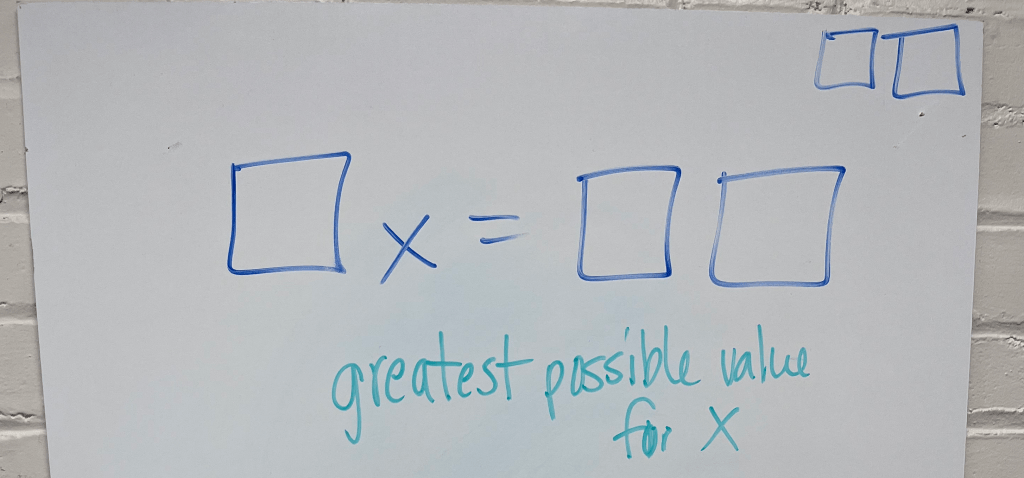 □ □
□ x = □ □
greatest possible value
for x